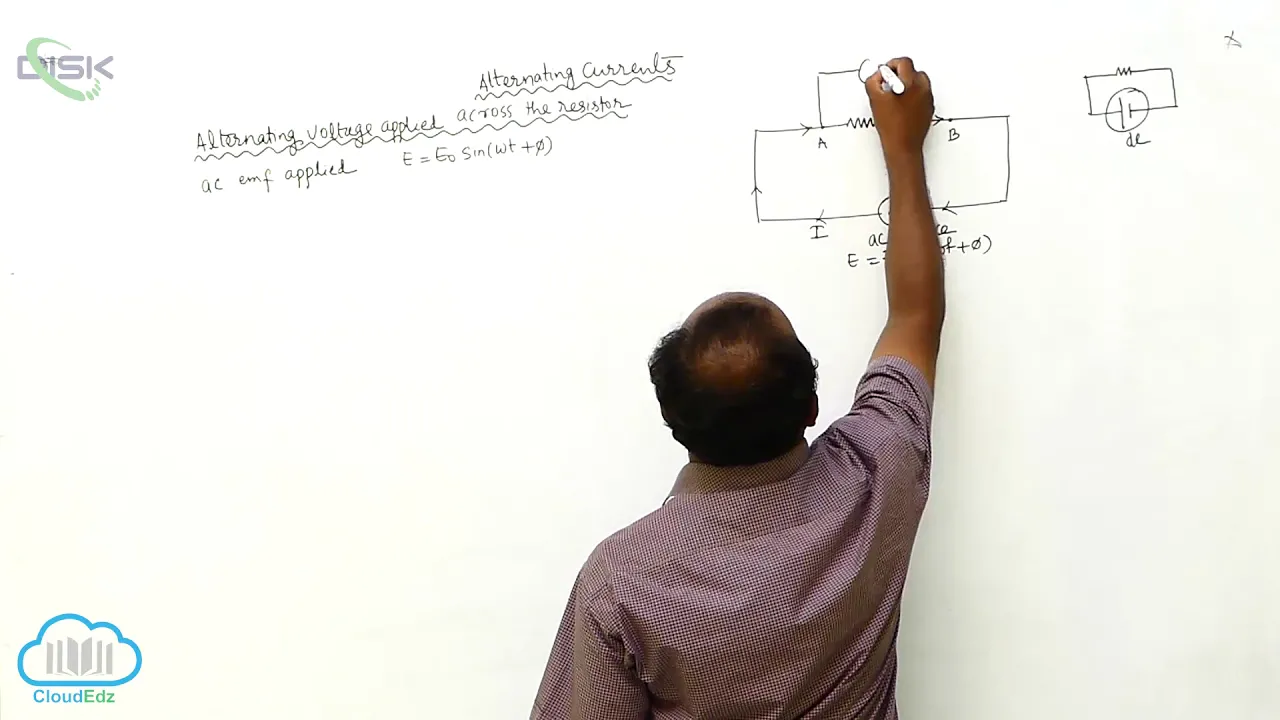 DISK
Alternating Currents
Alternating Voltage applied across the resistor
ac emf applied E = E₀ Sin(ωt + ø)
A
B
I
ac
E =
+ ø)
dc
CloudEdz